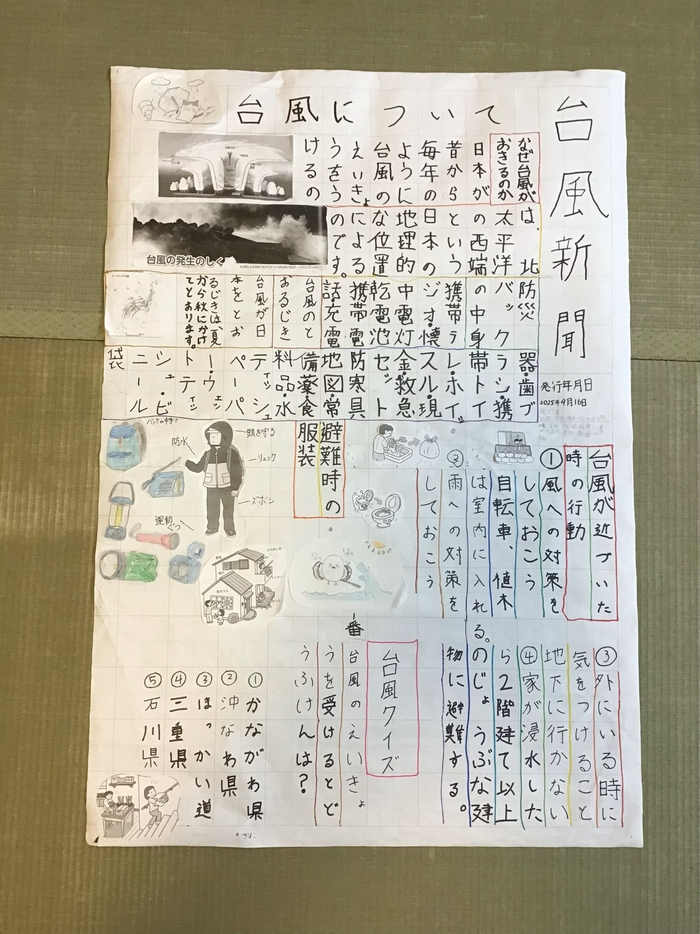 台風新聞
発行年月日
2025年9月16日
台風について
なぜ台風が
おきるのか
日本が
昔から
毎年の
ように
台風の
えいきょ
うをう
けるの
は、北
太平洋
の西端
という
日本の
地理的
な位置
による
のです。
台風の発生のしく
防災
バック
の中身
携帯ラ
ジオ・懐
中電灯
乾電池
携帯電
話・充電
器・歯ブ
ラシ・携
帯トイ
レ・ホイッ
スル・現
金・救急
セット
防寒具
地図・常
備薬・食
料品・水
ティッシュ
ペーパ
ー・ウェッ
トティ
シュ・ビ
ニール
袋
台風のと
おるじき
台風が日
本をとお
るじきは、夏
から秋にかけ
てとおります。
台風が近づいた
時の行動
①風への対策を
しておこう
自転車、植木
は室内に入れる。
②雨への対策を
しておこう
③外にいる時に
気をつけること
地下に行かない
④家が浸水した
ら2階建て以上
のじょうぶな建
物に避難する。
避難時の
服装
頭を守る
防水
リュック
ズボン
運動ぐつ
台風クイズ
一番
台風のえいきょ
うを受けるとど
うふけんは？
①かながわ県
②沖なわ県
③ほっかい道
④三重県
⑤石川県